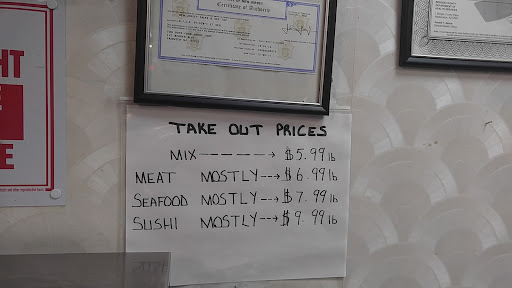 Certificate of Authority
TAKE OUT PRICES
MIX------→ $5.99 lb
MEAT MOSTLY---→ $6.99 lb
SEAFOOD MOSTLY---→ $7.99 lb
SUSHI MOSTLY---→ $9.99 lb
HT
E
E